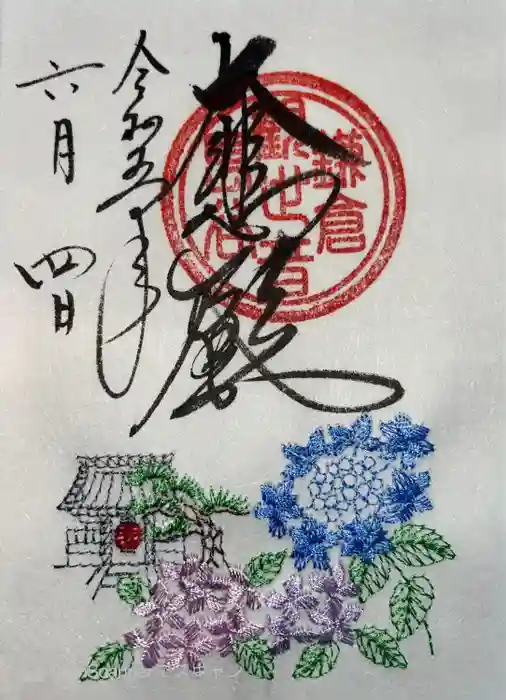 大悲殿
令和五年
六月四日
鎌倉
観世音